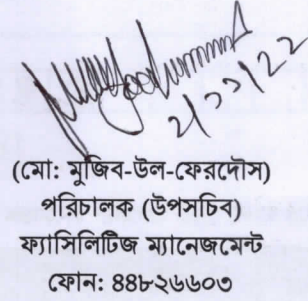 ২/১১/২২
(মো: মুজিব-উল-ফেরদৌস)
পরিচালক (উপসচিব)
ফ্যাসিলিটিজ ম্যানেজমেন্ট
ফোন: ৪৪৮২৬৬০৩